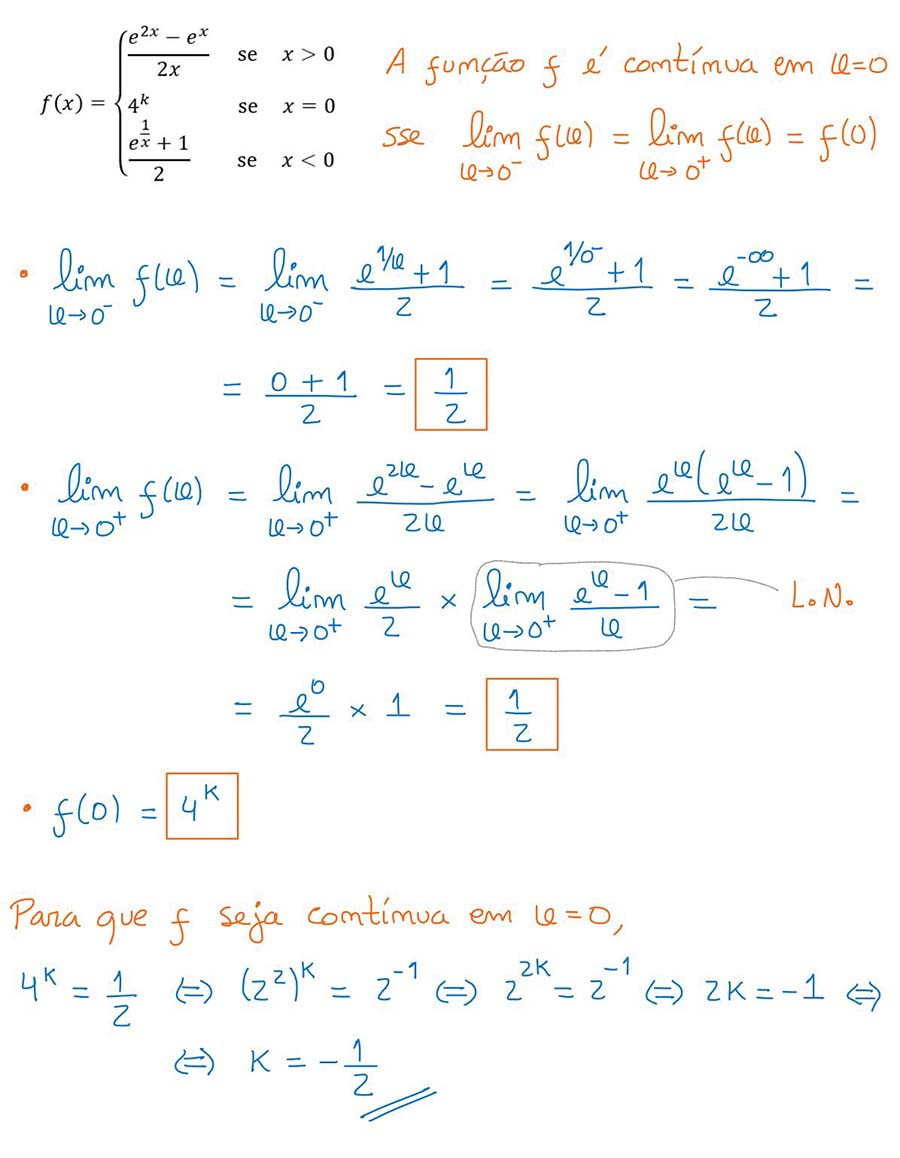 f(x) = { (e^{2x} − e^x)/(2x) se x > 0
4^k se x = 0
(e^{1/x} + 1)/2 se x < 0
A função f é contínua em x=0
sse lim_{x→0⁻} f(x) = lim_{x→0⁺} f(x) = f(0)
• lim_{x→0⁻} f(x) = lim_{x→0⁻} (e^{1/x}+1)/2 = (e^{1/0⁻}+1)/2 = (e^{-∞}+1)/2 =
= (0+1)/2 = 1/2
• lim_{x→0⁺} f(x) = lim_{x→0⁺} (e^{2x}-e^x)/(2x) = lim_{x→0⁺} e^x(e^x-1)/(2x) =
= lim_{x→0⁺} e^x/2 × lim_{x→0⁺} (e^x-1)/x = L.N.
= e^0/2 × 1 = 1/2
• f(0) = 4^K
Para que f seja contínua em x=0,
4^K = 1/2 ⇔ (2²)^K = 2^{-1} ⇔ 2^{2K} = 2^{-1} ⇔ 2K = -1 ⇔
⇔ K = -1/2